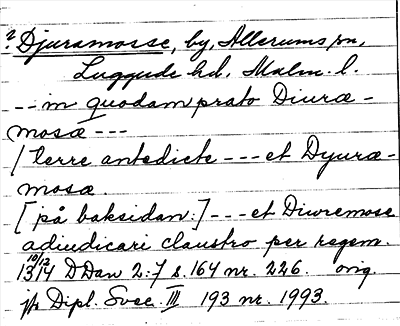 ? Djuramosse, by, Allerums sn,
Luggude hd, Malm. l.
-- in quodam prato Diuræ-
mosæ ---
/ terre antedicte --- et Dyuræ-
mosæ.
[på baksidan:] --- et Diuremose
adiudicari claustro per regem.
10/12 1314 DDan 2:7 s. 164 nr. 226. orig.
jfr Dipl. Svec. III 193 nr. 1993.